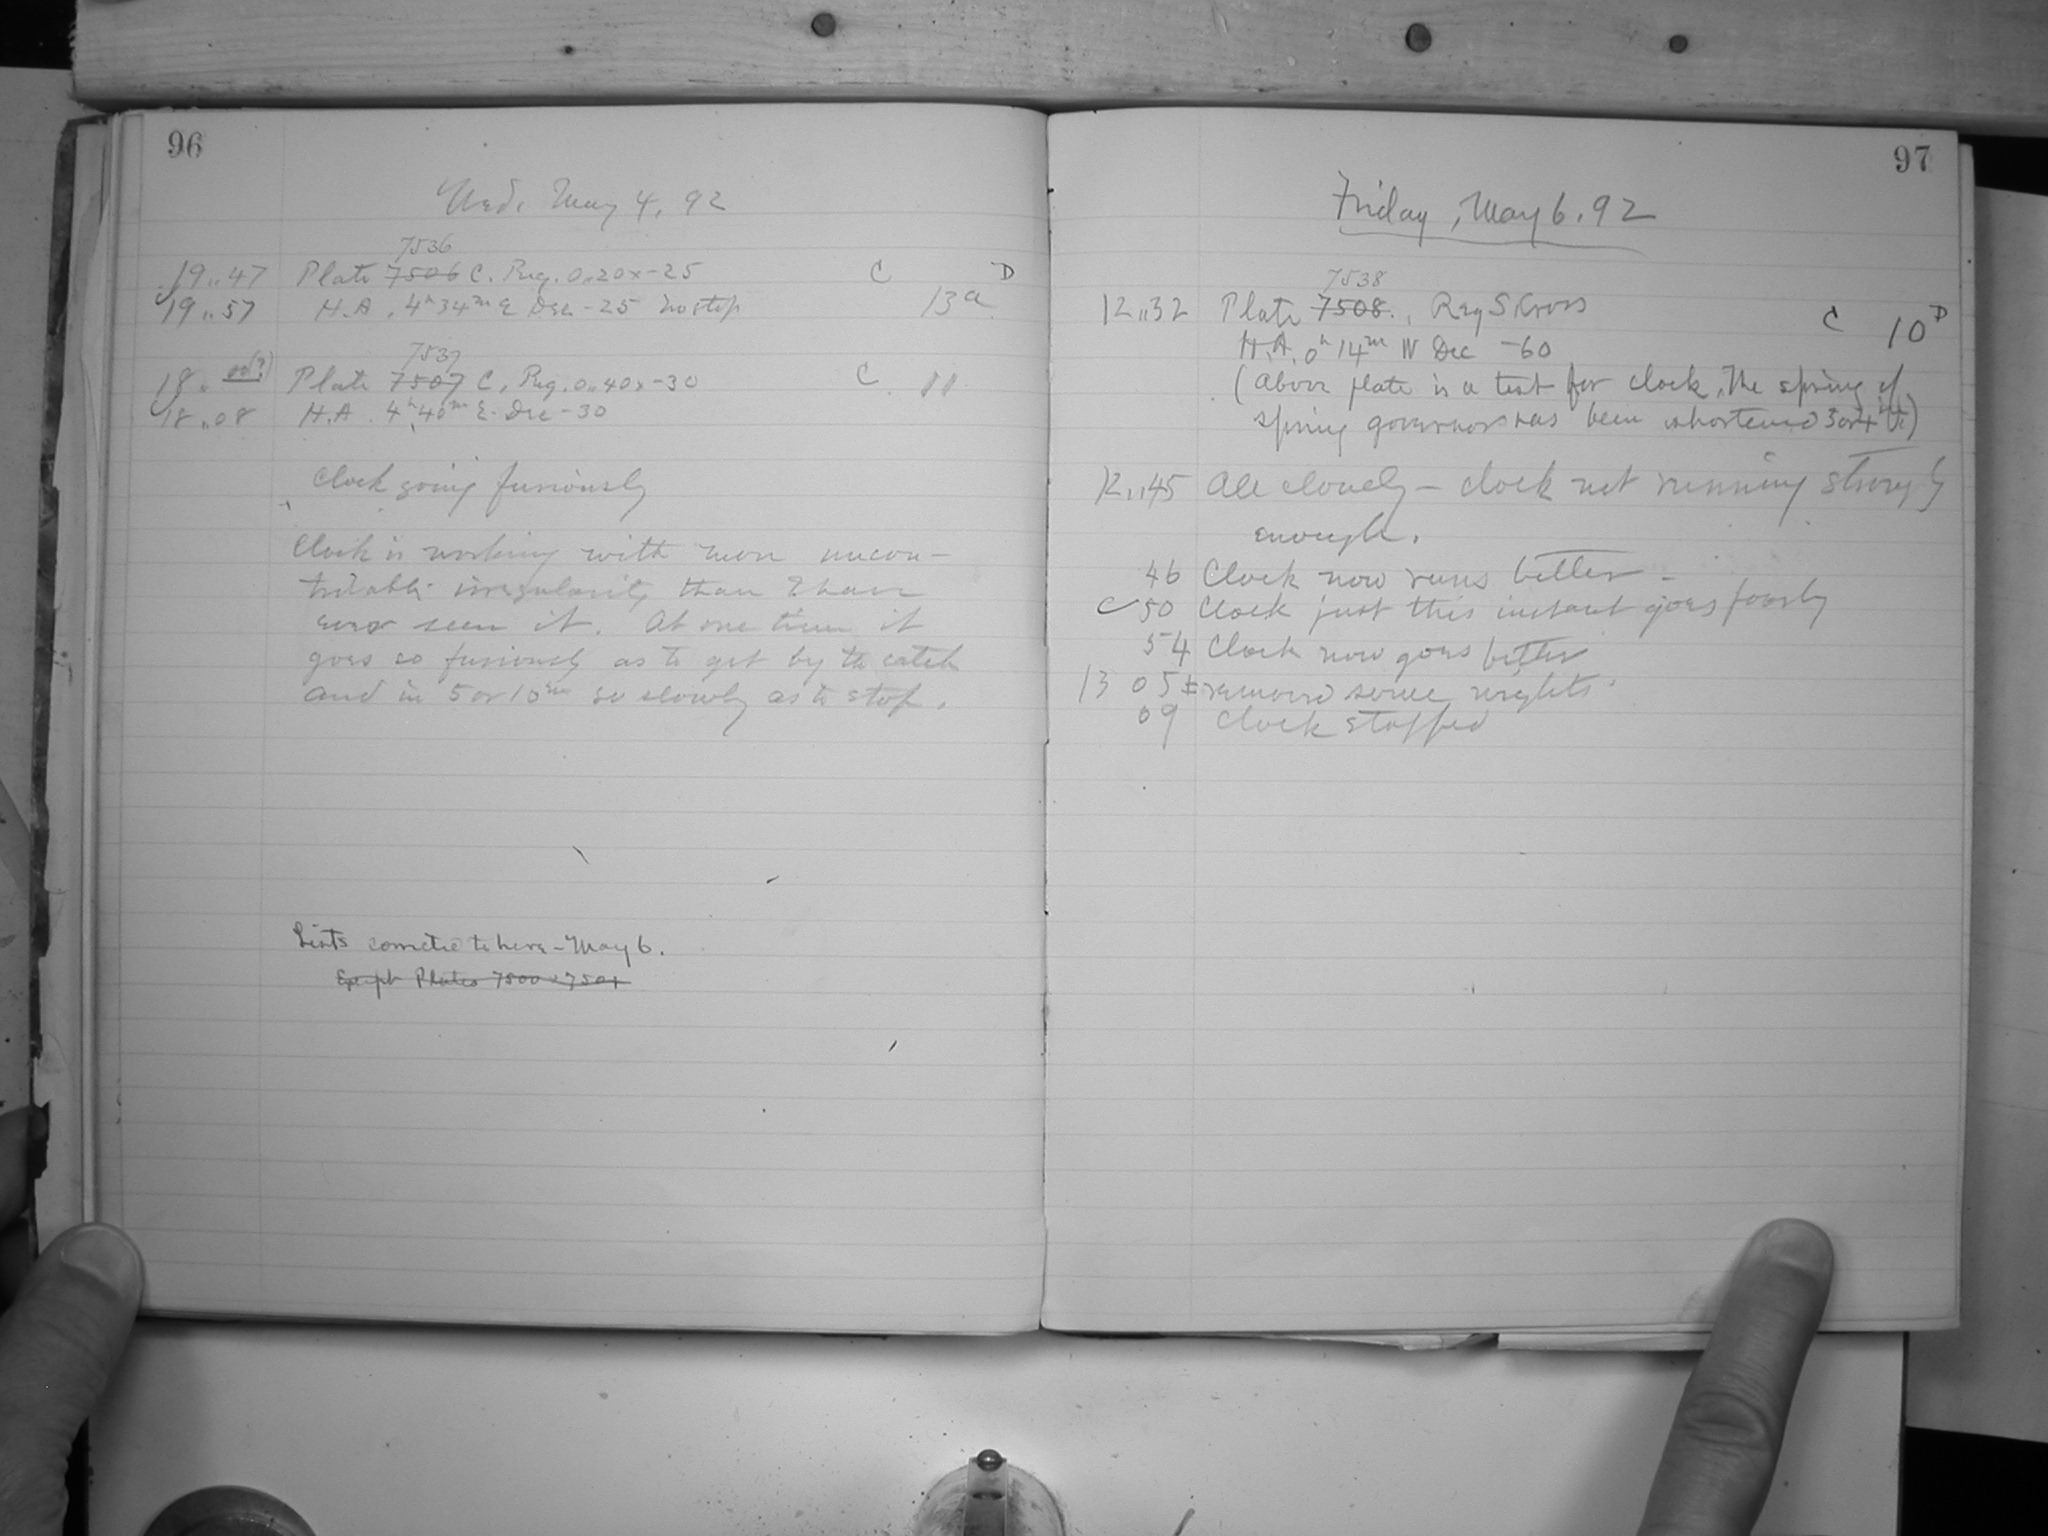 96
Wed. May 4, 92
7536
19..47 Plate 7506 C. Reg. 0..20x-25 C D
19..57 H.A. 4h 34m E Dec -25 no stop 13a
7537
18..00(?) Plate 7507 C. Reg. 0..40x-30 C 11
18..08 H.A. 4h 40m E. Dec -30
Clock going furiously
Clock is working with more uncon-
trolable irregularity than I have
ever seen it. At one time it
goes so furiously as to get by the catch
and in 5 or 10m so slowly as to stop.
Lists corrected to here - May 6.
Except Plates 7500 x 7501
97
Friday, May 6. 92
7538
12..32 Plate 7508., Reg S. Cross C 10 D
H.A. 0h 14m W Dec -60
(Above plate is a test for clock. The spring of
spring governor has been shortened 3 or 4
12..45 All cloudy - clock not running strongly
enough.
46 Clock now runs better -
50 Clock just this instant goes poorly
54 Clock now goes better
13 05± removed some weights.
09 Clock stopped